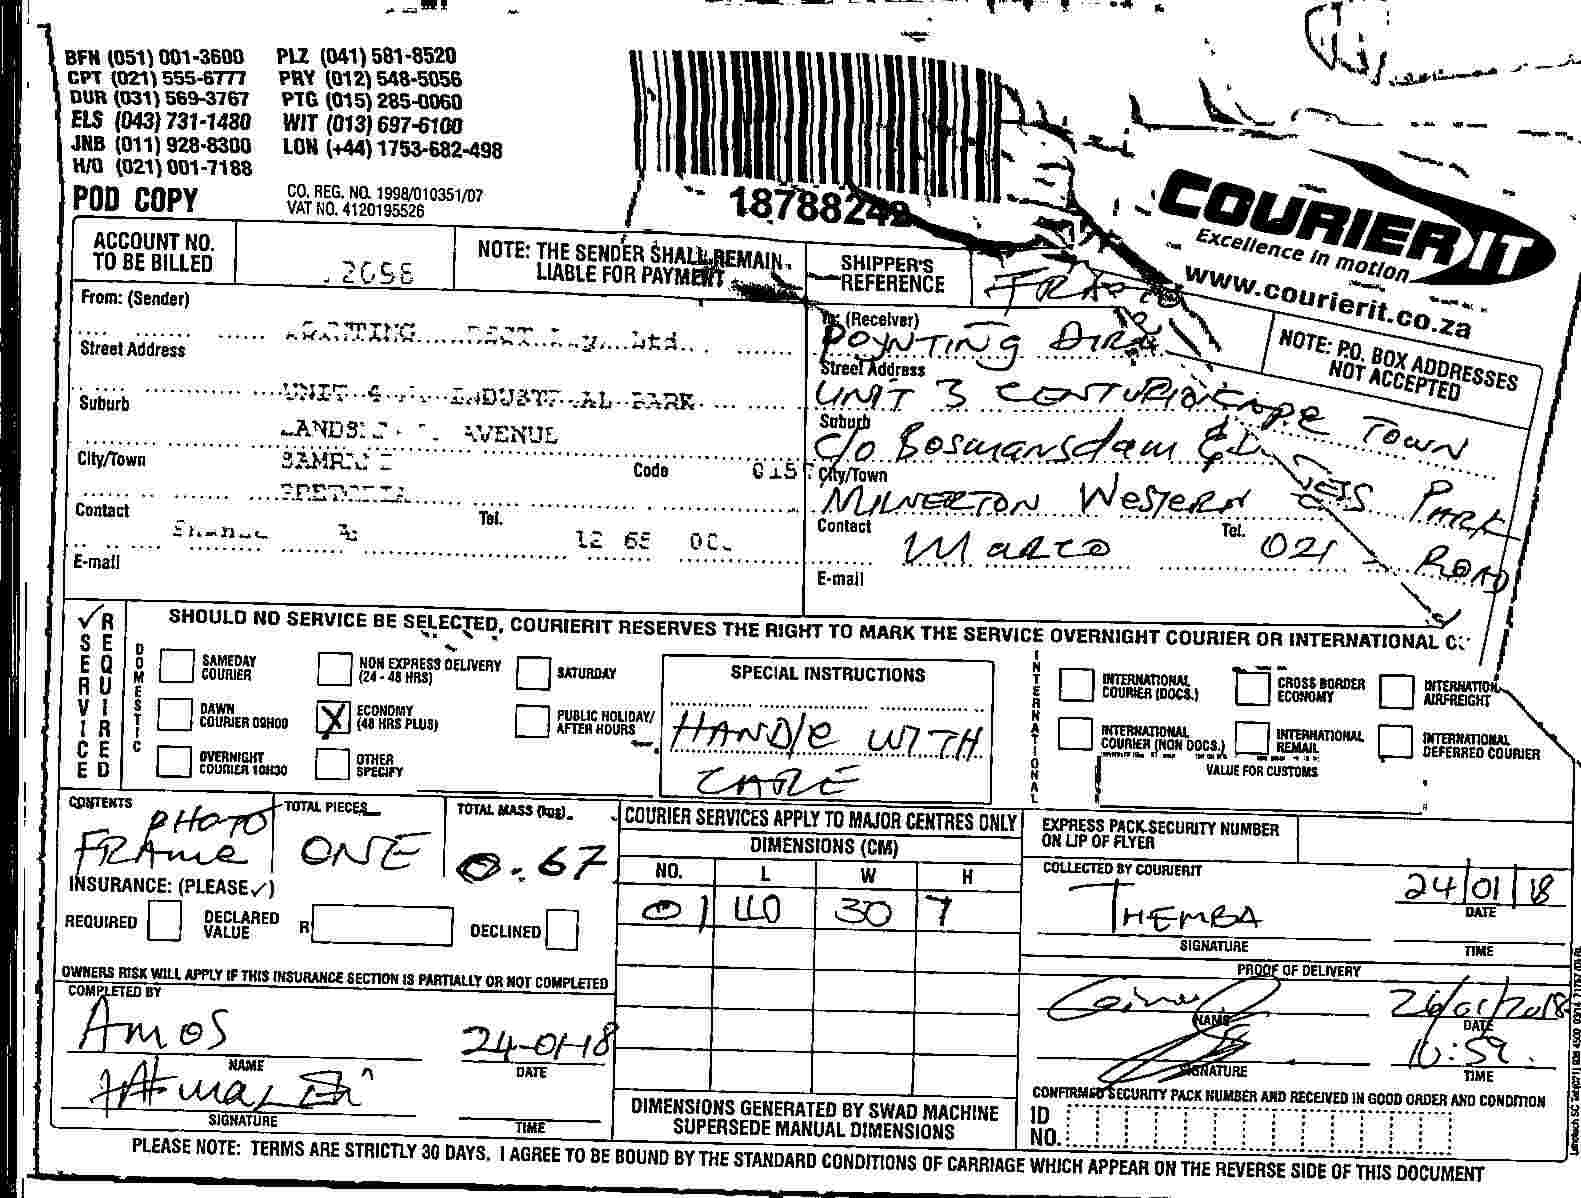 BFN (051) 001-3600 PLZ (041) 581-8520
CPT (021) 555-6777 PRY (012) 548-5056
DUR (031) 569-3767 PTG (015) 285-0060
ELS (043) 731-1480 WIT (013) 697-6100
JNB (011) 928-8300 LON (+44) 1753-682-498
H/O (021) 001-7188
POD COPY
CO. REG. NO. 1998/010351/07
VAT NO. 4120195526
18788242
COURIER IT
Excellence in motion
www.courierit.co.za
ACCOUNT NO.
TO BE BILLED
2098
NOTE: THE SENDER SHALL REMAIN
LIABLE FOR PAYMENT
SHIPPER'S
REFERENCE
NOTE: P.O. BOX ADDRESSES
NOT ACCEPTED
From: (Sender)
Ltd
Street Address
UNIT 4 INDUSTRIAL PARK
Suburb
AVENUE
City/Town
Code
PRETORIA
Contact
Tel.
12 65
E-mail
To: (Receiver)
POYNTING
Street Address
UNIT 3 CENTURION
CAPE TOWN
Suburb
C/o Bosmansdam &
City/Town
PARK
MILNERTON WESTERN
Contact
MARCO
Tel. 021
ROAD
E-mail
SERVICE REQUIRED
SHOULD NO SERVICE BE SELECTED, COURIERIT RESERVES THE RIGHT TO MARK THE SERVICE OVERNIGHT COURIER OR INTERNATIONAL
DOMESTIC
SAMEDAY
COURIER
NON EXPRESS DELIVERY
(24 - 48 HRS)
SATURDAY
DAWN
COURIER 09H00
ECONOMY
(48 HRS PLUS)
X
PUBLIC HOLIDAY/
AFTER HOURS
OVERNIGHT
COURIER 10H30
OTHER
SPECIFY
SPECIAL INSTRUCTIONS
HANDLE WITH
CARE
INTERNATIONAL
INTERNATIONAL
COURIER (DOCS.)
CROSS BORDER
ECONOMY
INTERNATION
AIRFREIGHT
INTERNATIONAL
COURIER (NON DOCS.)
INTERNATIONAL
REMAIL
INTERNATIONAL
DEFERRED COURIER
VALUE FOR CUSTOMS
CONTENTS
PHOTO
FRAME
TOTAL PIECES
ONE
TOTAL MASS (kgs)
0.67
INSURANCE: (PLEASE ✓)
REQUIRED
DECLARED
VALUE
R
DECLINED
OWNERS RISK WILL APPLY IF THIS INSURANCE SECTION IS PARTIALLY OR NOT COMPLETED
COMPLETED BY
AMOS
NAME
24-01-18
DATE
SIGNATURE
TIME
COURIER SERVICES APPLY TO MAJOR CENTRES ONLY
DIMENSIONS (CM)
NO. L W H
01 40 30 7
DIMENSIONS GENERATED BY SWAD MACHINE
SUPERSEDE MANUAL DIMENSIONS
EXPRESS PACK SECURITY NUMBER
ON LIP OF FLYER
COLLECTED BY COURIERIT
THEMBA
SIGNATURE
24/01/18
DATE
TIME
PROOF OF DELIVERY
NAME
26/01/2018
DATE
SIGNATURE
10:59
TIME
CONFIRMED SECURITY PACK NUMBER AND RECEIVED IN GOOD ORDER AND CONDITION
ID
NO.
PLEASE NOTE: TERMS ARE STRICTLY 30 DAYS. I AGREE TO BE BOUND BY THE STANDARD CONDITIONS OF CARRIAGE WHICH APPEAR ON THE REVERSE SIDE OF THIS DOCUMENT